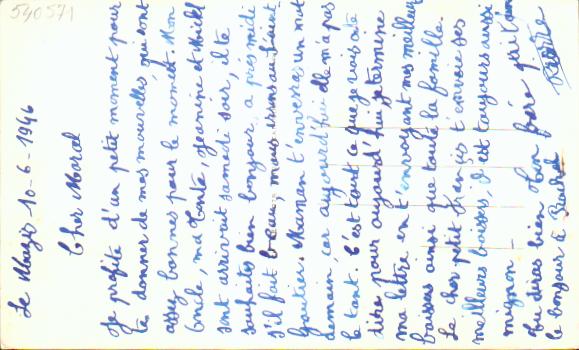 540571
Le Mazis 10-6-1946
Cher Marcel
Je profite d'un petit moment pour
te donner de mes nouvelles qui sont
assez bonnes pour le moment. Mon
Oncle, ma Tante, Jeanine et
sont arrivait samedi soir, il te
souhaites bien bonjour, après midi
s'il fait beau, nous irons au Saint
Gautier. Maman t'enverra un mot
demain, car aujourd'hui elle n'a pas
le temt. C'est tout ce que je vois à te
dire pour aujourd'hui, je termine
ma lettre en t'envoyant mes meilleurs
baisers ainsi que toute la famille.
Le cher petit François t'envoie ses
meilleurs baisers, il est toujours aussi
mignon -
Tu diras bien Ton frère qui t'aime
le bonjour à Pierre